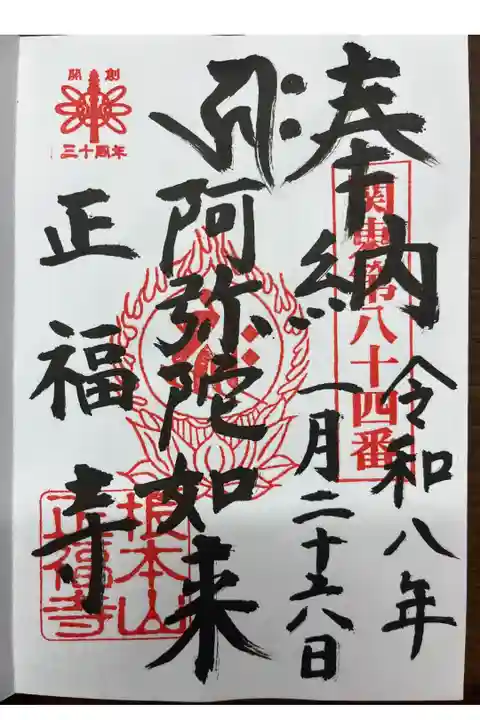 奉納
令和八年
一月二十六日
関東第八十四番
阿弥陀如来
正福寺
開創
三十周年
根本山
正福寺